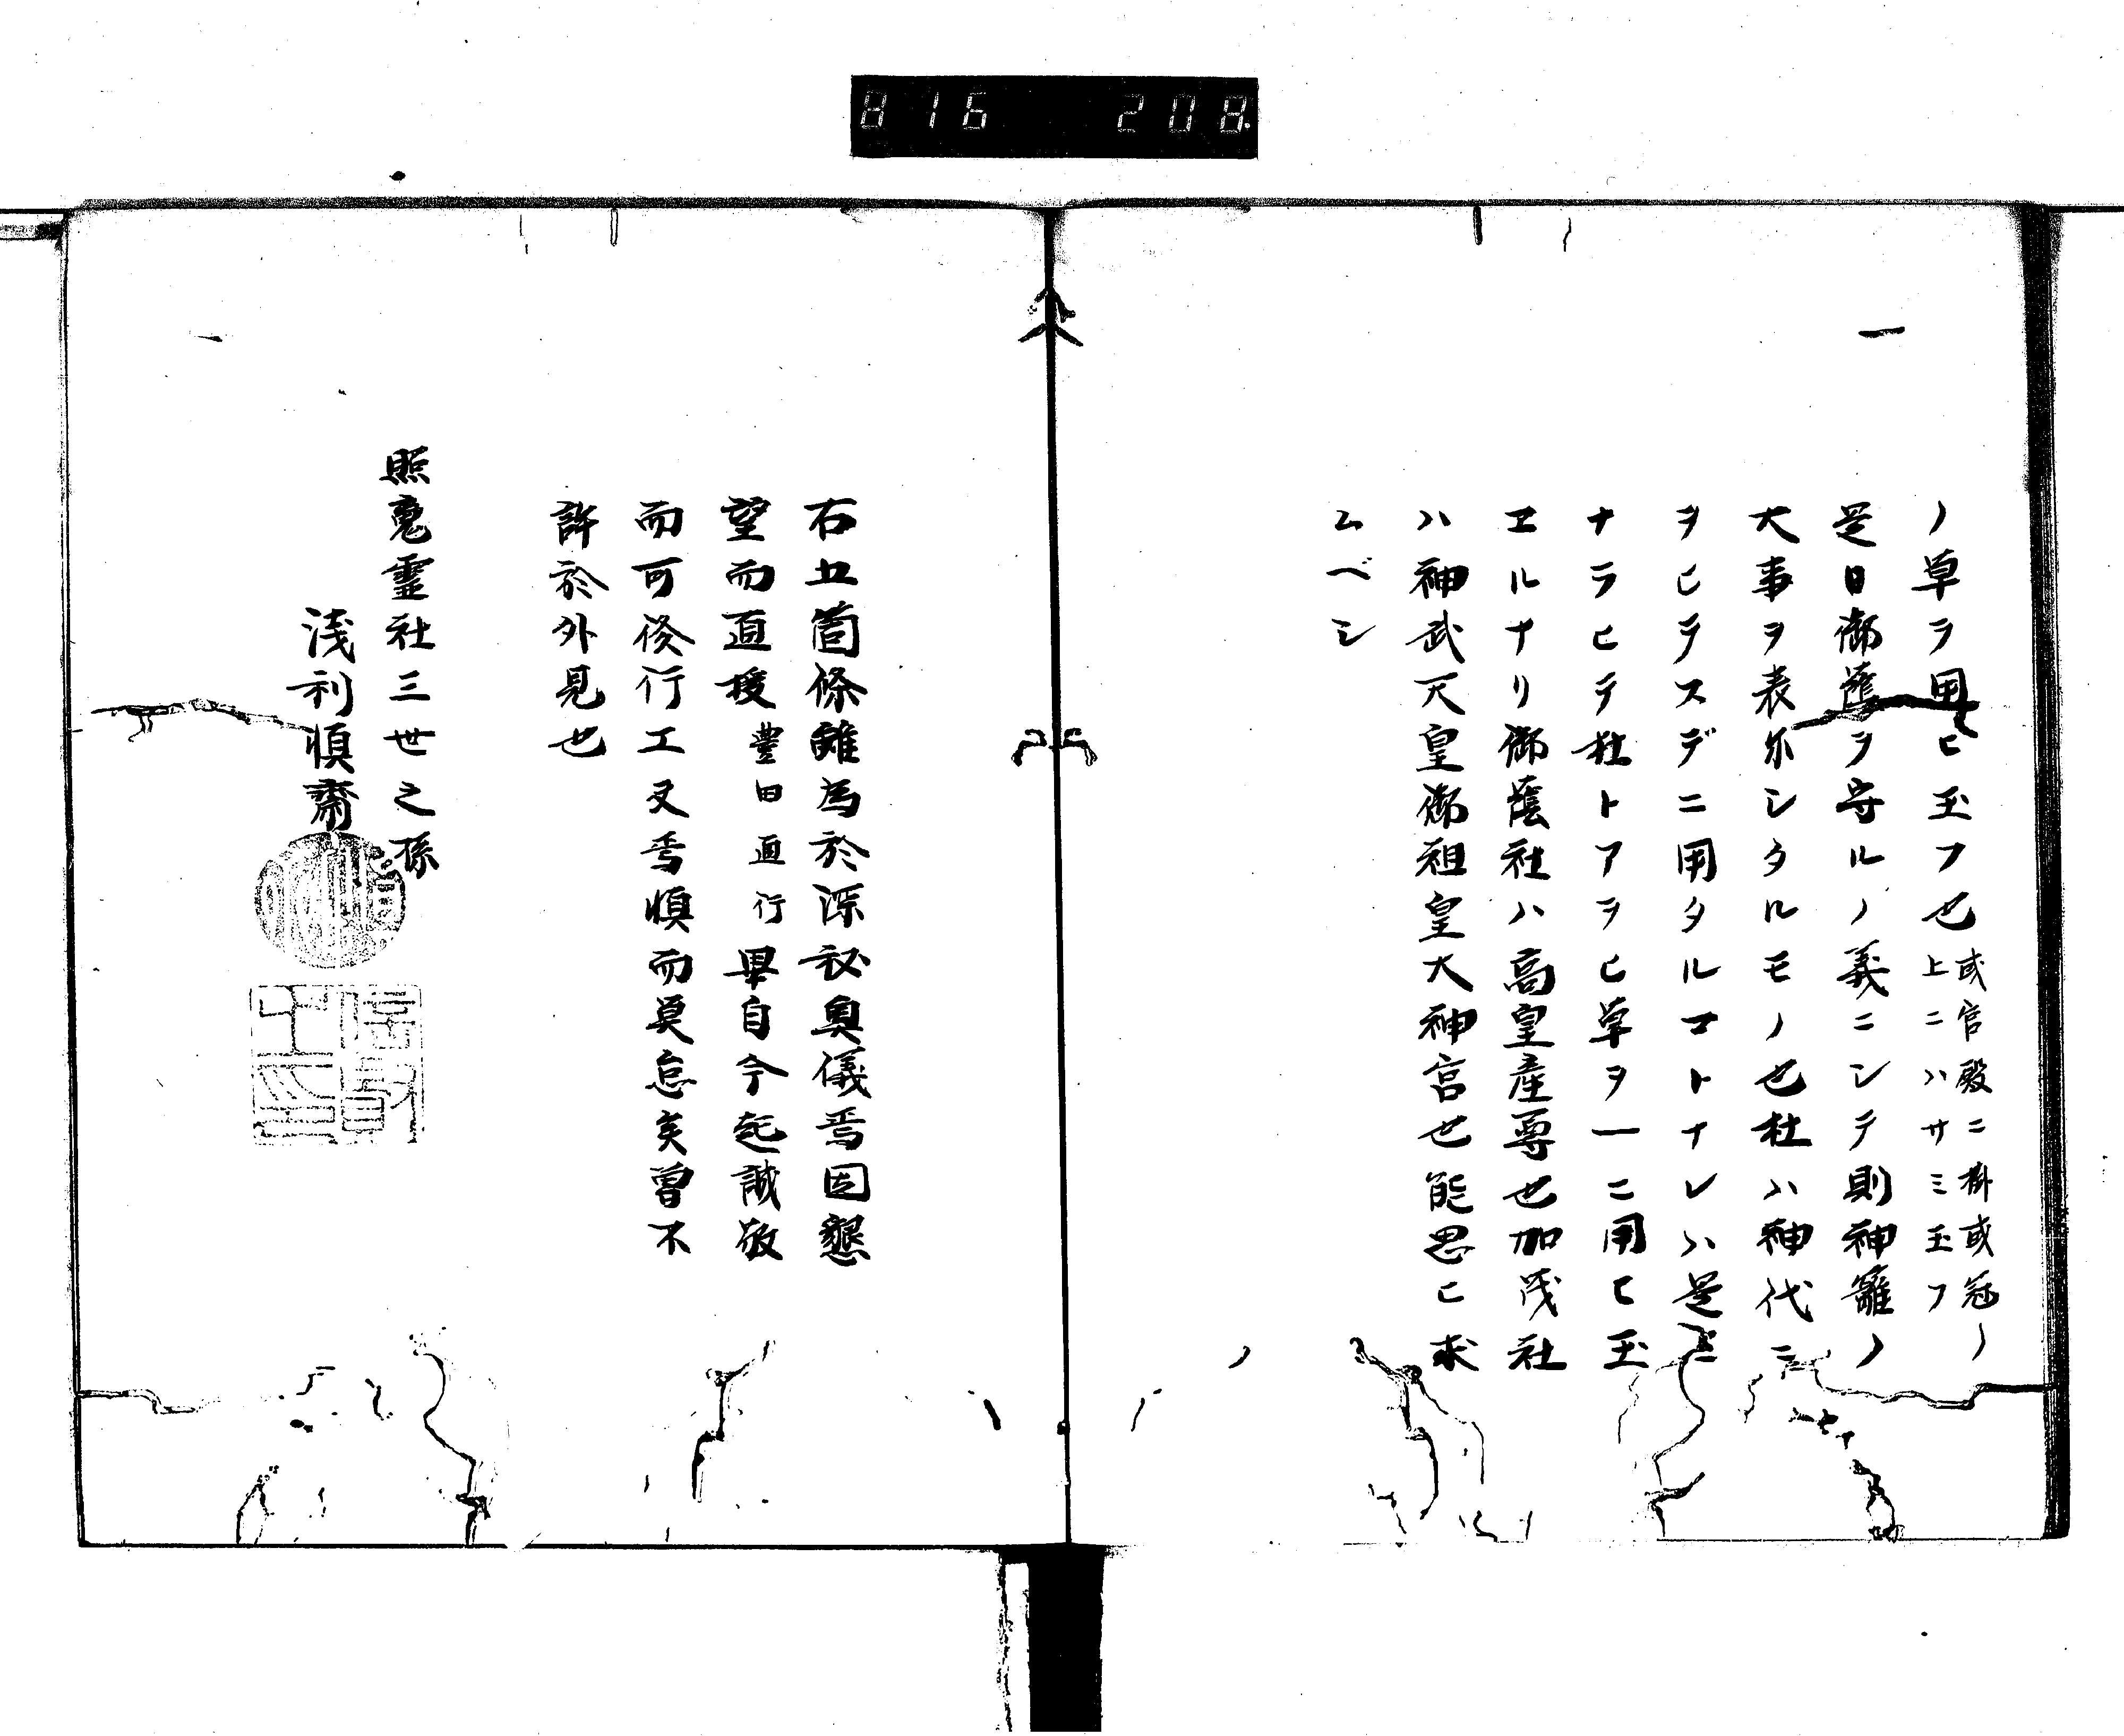 816 208
一
ノ草ヲ用ヒ玉フ也
或官殿ニ掛或冠ノ
上ニハサミ玉フ
是日御蔭ヲ守ルノ義ニシテ則神籬ノ
大事ヲ表尓シタルモノ也社ハ神代ニ
ヲヒテスデニ用タルコトナレハ是ニ
ナラヒテ社トアヲヒ草ヲ一ニ用ヒ玉
エルナリ御蔭社ハ高皇産尊也加茂社
ハ神武天皇御祖皇大神宮也能思ヒ求
ムベシ
右五箇條雖為於深秘奥儀焉因懇
望而面授
豊田直行
畢自今起誠敬
而可修行工又焉慎而莫怠矣曽不
許於外見也
照 霊社三世之孫
浅利慎齋